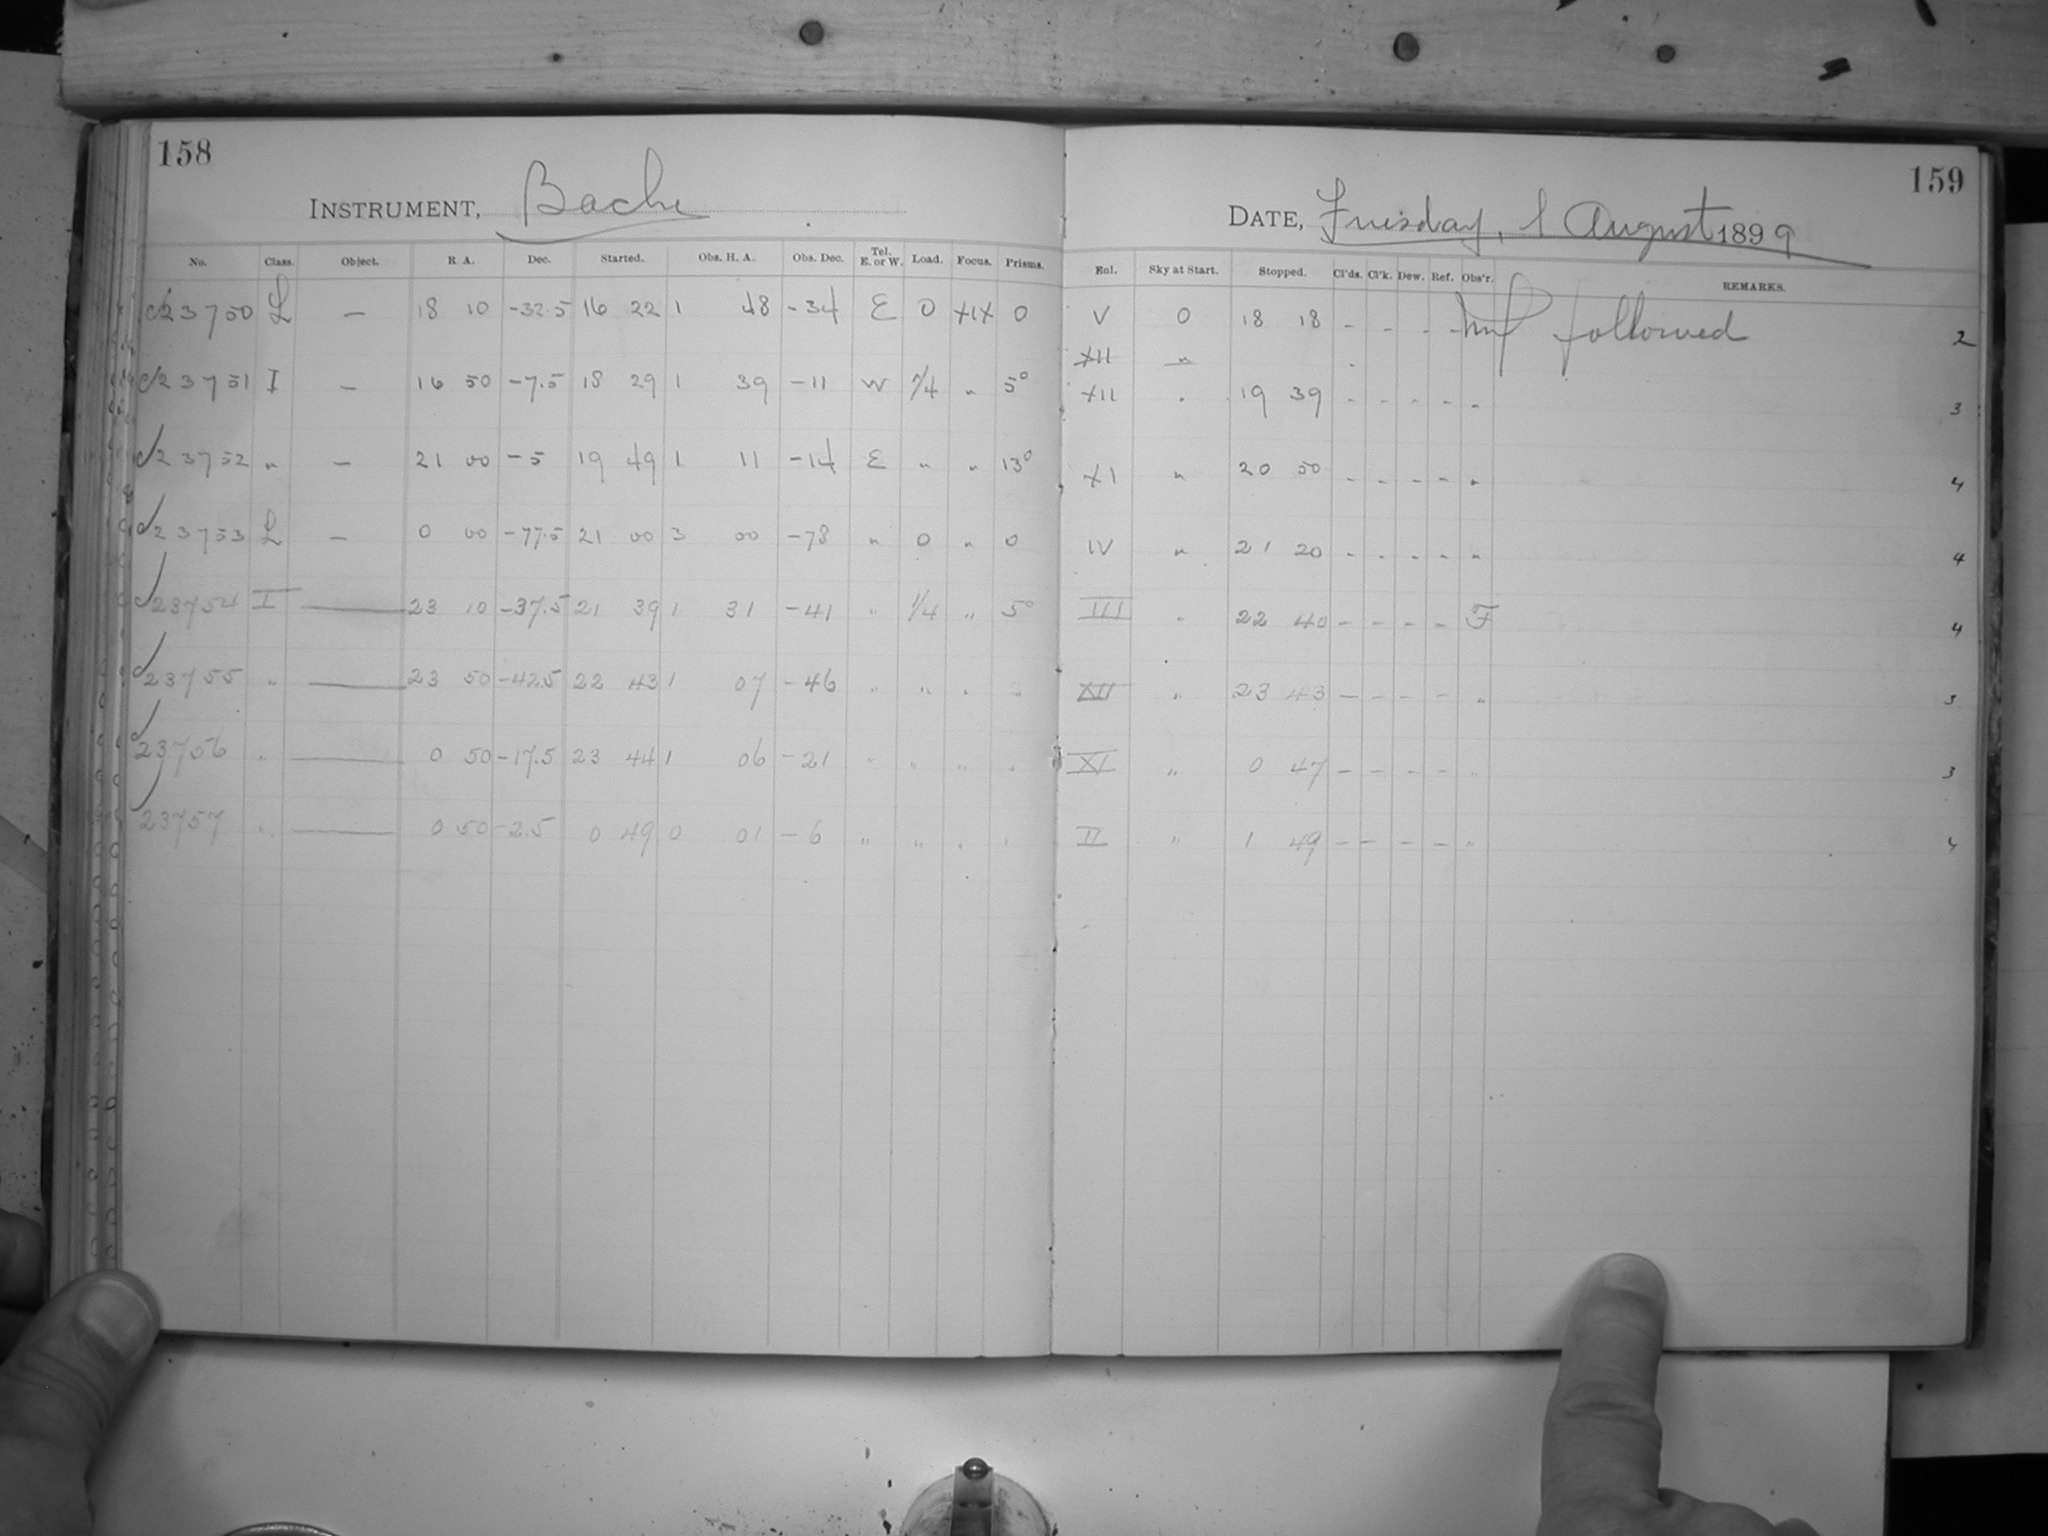 158
INSTRUMENT, Bache
No. Class. Object. R A. Dec. Started. Obs. H. A. Obs. Dec. Tel. E. or W. Load. Focus. Prisms.
c23750 L — 18 10 -32.5 16 22 1 48 -34 E 0 XIX 0
c23751 I — 16 50 -7.5 18 29 1 39 -11 W 1/4 " 5°
c23752 " — 21 00 -5 19 49 1 11 -14 E " " 13°
c23753 L — 0 00 -77.5 21 00 3 00 -78 " 0 " 0
c23754 I — 23 10 -37.5 21 39 1 31 -41 " 1/4 " 5°
c23755 " — 23 50 -42.5 22 43 1 07 -46 " " " "
23756 " — 0 50 -17.5 23 44 1 06 -21 " " " "
23757 " — 0 50 -2.5 0 49 0 01 -6 " " " "
159
DATE, Tuesday, 1 August 1899
Enl. Sky at Start. Stopped. Cl'ds. Cl'k. Dew. Ref. Obs'r. REMARKS.
V 0 18 18 - - - - followed 2
XII "
XII " 19 39 - - - - " 3
XI " 20 50 - - - - " 4
IV " 21 20 - - - - " 4
III " 22 40 - - - - F 4
XII " 23 43 - - - - " 3
XI " 0 47 - - - - " 3
II " 1 49 - - - - " 4